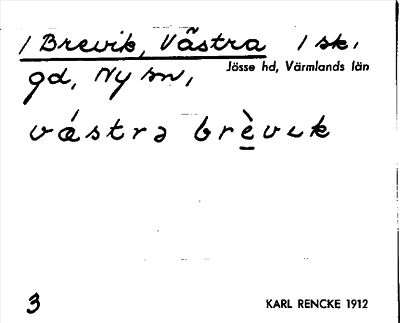 1 Brevik, Västra 1 sk.
gd, Ny sn, Jösse hd, Värmlands län
vǽstra brèvık
3 KARL RENCKE 1912